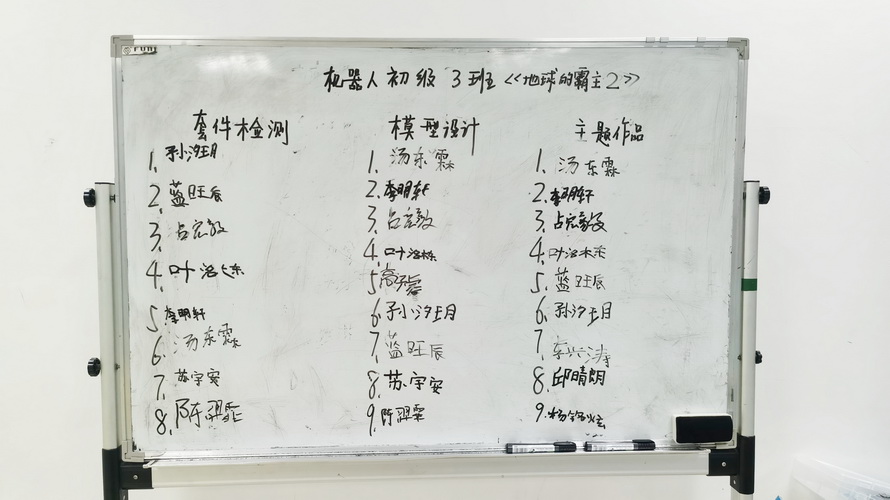 机器人初级 3班 《地球的霸主2》
套件检测
1. 孙汐玥
2. 蓝旺辰
3. 占宏毅
4. 叶洛东
5. 李明轩
6. 汤东霖
7. 苏宇安
8. 陈翌霏
模型设计
1. 汤东霖
2. 李明轩
3. 占宏毅
4. 叶洛栋
5.
6. 孙汐玥
7. 蓝旺辰
8. 苏宇安
9. 陈翌霏
主题作品
1. 汤东霖
2. 李明轩
3. 占宏毅
4. 叶洛东
5. 蓝旺辰
6. 孙汐玥
7.
8. 邱晴朗
9.